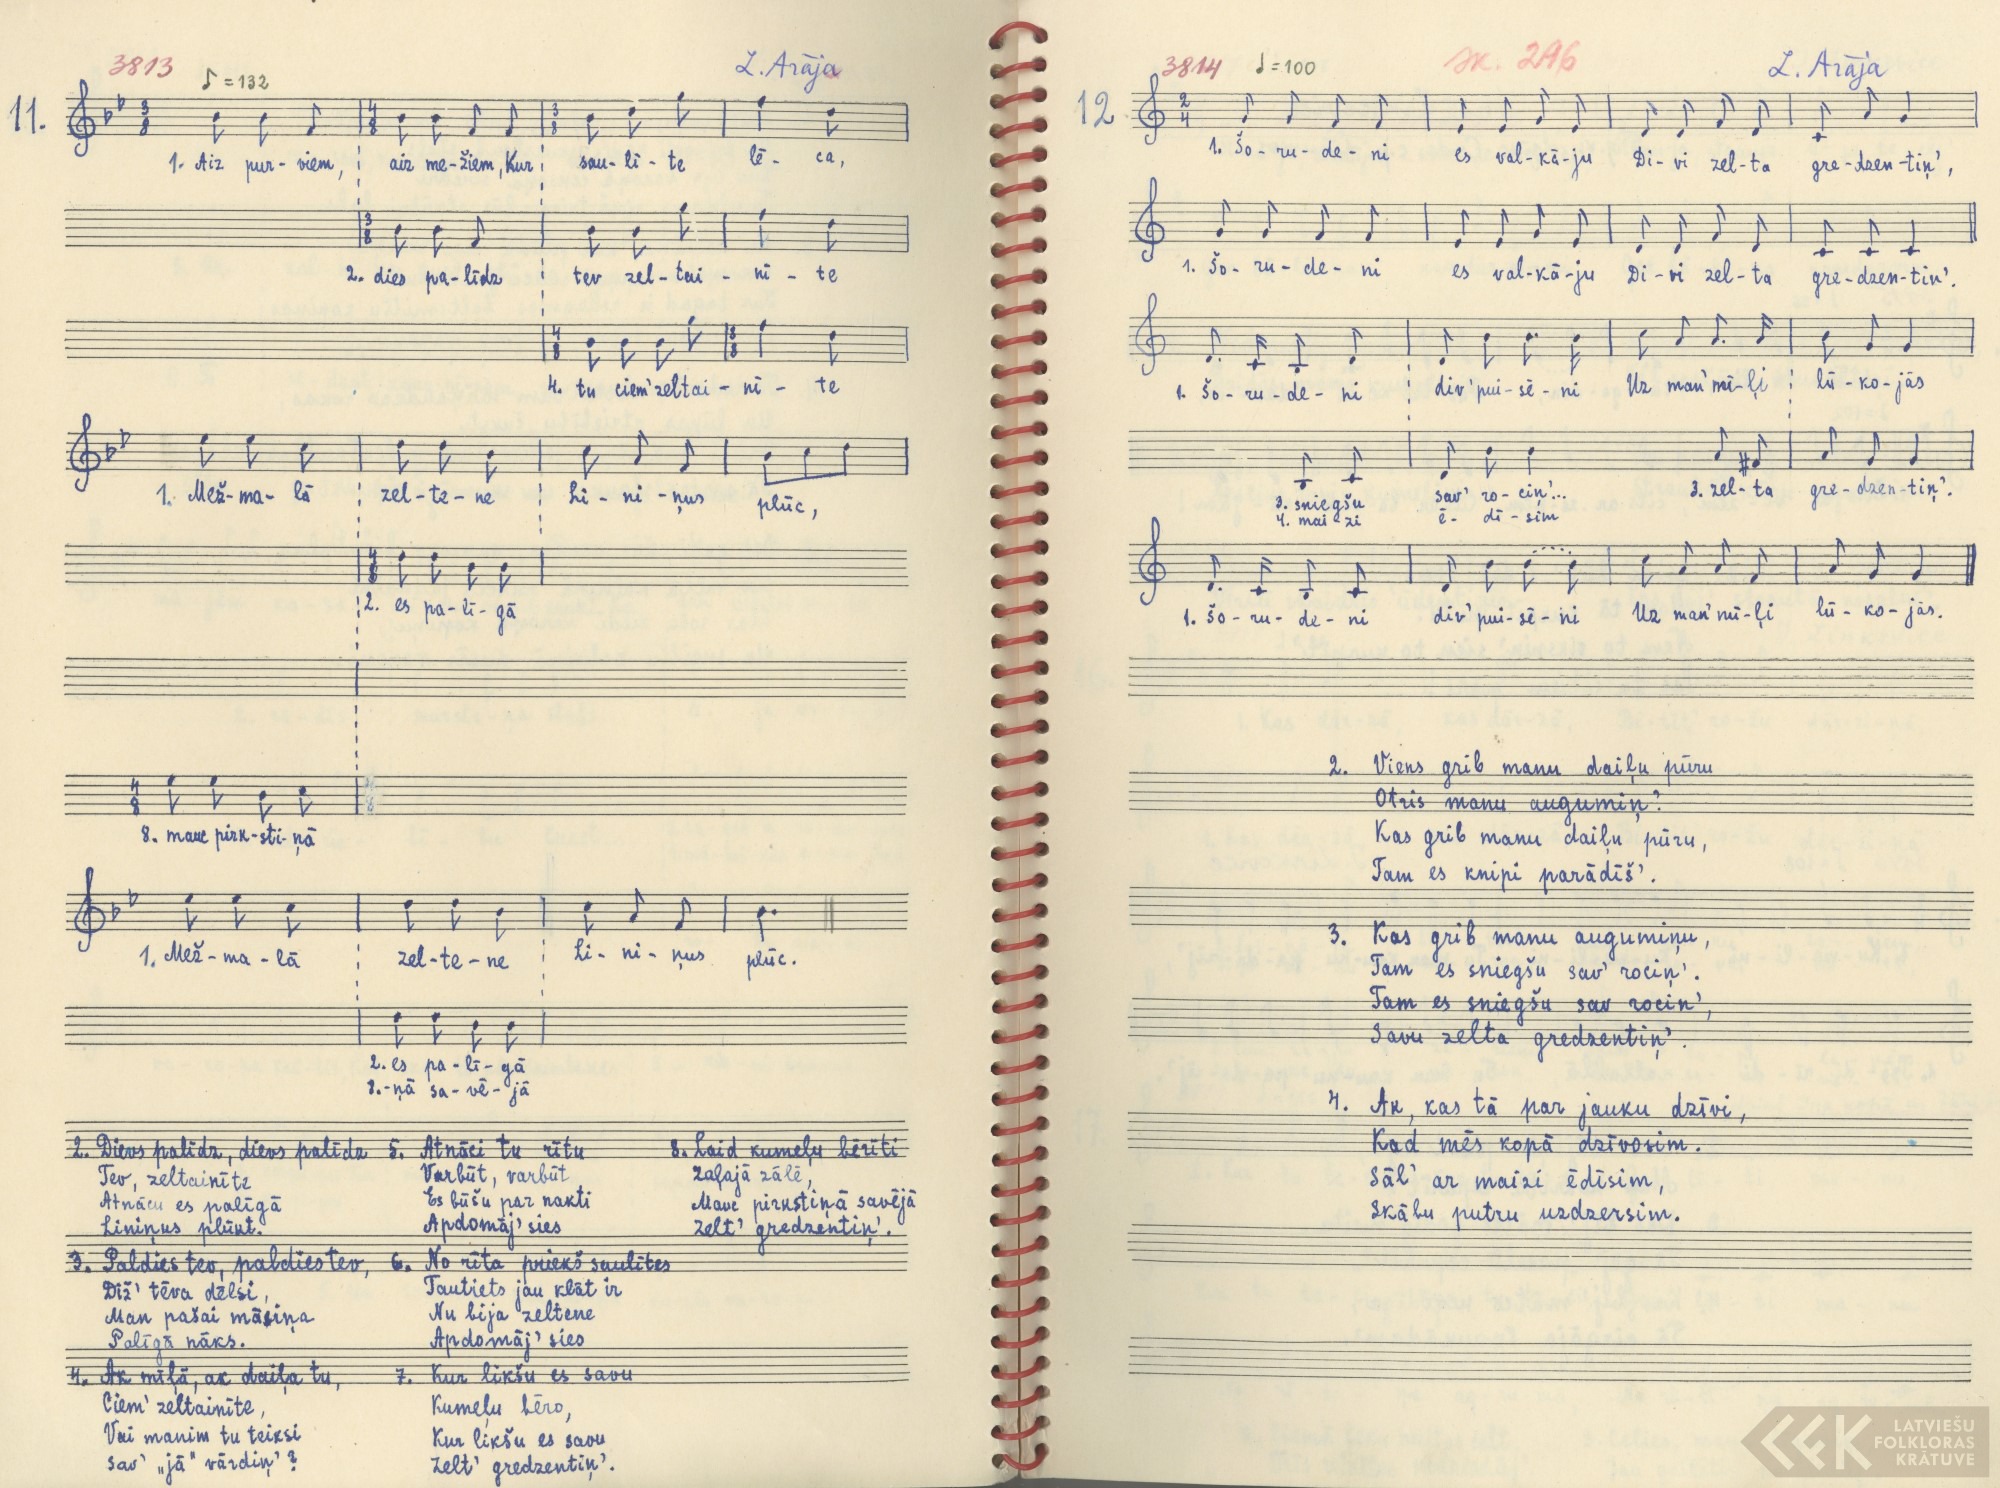 3813 ♪=132 Z. Arāja
11.
1. Aiz pur-viem, aiz me-žiem, Kur sau-lī-te lē-ca,
2. dies pa-līdz tev zel-tai-nī-te
4. tu ciem' zeltai-nī-te
1. Mež-ma-lā zel-te-ne Li-ni-ņus plūc,
2. es pa-lī-gā
8. mauc pirk-sti-ņā
1. Mež-ma-lā zel-te-ne Li-ni-ņus plūc.
2. es pa-lī-gā
8.-ņā sa-vē-jā
2. Dievs palīdz, dievs palīdz
Tev, zeltainīte
Atnācu es palīgā
Liniņus plūkt.
3. Paldies tev, paldies tev,
Diž' tēva dēlsi,
Man pašai māsiņa
Palīgā nāks.
4. Ak mīļā, ak daiļa tu,
Ciem' zeltainīte,
Vai manim tu teiksi
sav' „jā" vārdiņ'?
5. Atnāci tu rītu
Varbūt, varbūt
Es būšu par nakti
Apdomāj'sies
6. No rīta priekš saulītes
Tautiets jau klāt ir
Nu bija zeltene
Apdomāj'sies
7. Kur likšu es savu
Kumeļu bēro,
Kur likšu es savu
Zelt' gredzentiņ'.
8. Laid kumeļu bērīti
Zaļajā zālē,
Mauc pirkstiņā savējā
Zelt' gredzentiņ'.
3814 ♩=100 sk. 2A6 Z. Arāja
12
1. Šo-ru-de-ni es val-kā-ju Di-vi zel-ta gre-dzen-tiņ',
1. Šo-ru-de-ni es val-kā-ju Di-vi zel-ta gre-dzen-tiņ'.
1. Šo-ru-de-ni div' pui-sē-ni Uz man' mī-ļi lū-ko-jās
3. sniegšu sav' ro-ciņ'... 3. zel-ta gre-dzen-tiņ'.
4. mai-zi ē-dī-sim
1. Šo-ru-de-ni div' pui-sē-ni Uz man' mī-ļi lū-ko-jās.
2. Viens grib manu daiļu pūru
Otris manu augumiņ'
Kas grib manu daiļu pūru,
Tam es knipi parādīš'.
3. Kas grib manu augumiņu,
Tam es sniegšu sav' rociņ'.
Tam es sniegšu sav rociņ',
Savu zelta gredzentiņ'.
4. Ak, kas tā par jauku dzīvi,
Kad mēs kopā dzīvosim.
Sāl' ar maizi ēdīsim,
Skābu putru uzdzersim.
LATVIEŠU
FOLKLORAS
KRĀTUVE